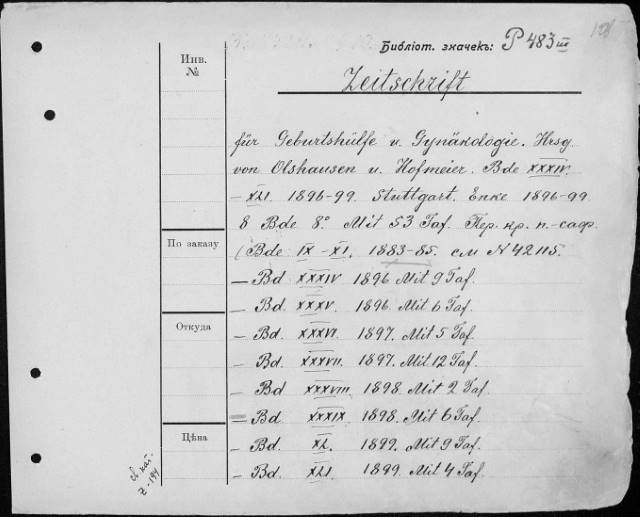 Библіот. значекъ: P 483 III
Инв. №
Zeitschrift
für Geburtshülfe u. Gynäkologie. Hrsg.
von Olshausen u. Hofmeier. Bde XXXIV.
- XLI. 1896-99. Stuttgart. Enke 1896-99
8 Bde 8°. Mit 53 Taf. Пер. кр. п.-саф.
(Bde IX - XI. 1883-85. см N 42115.
По заказу
— Bd XXXIV 1896 Mit 9 Taf.
— Bd. XXXV. 1896. Mit 6 Taf.
Откуда
— Bd. XXXVI. 1897. Mit 5 Taf.
— Bd. XXXVII. 1897. Mit 12 Taf.
— Bd XXXVIII 1898 Mit 2 Taf.
— Bd. XXXIX. 1898. Mit 6 Taf.
Цѣна
— Bd. XL. 1899. Mit 9 Taf.
— Bd. XLI. 1899. Mit 4 Taf.